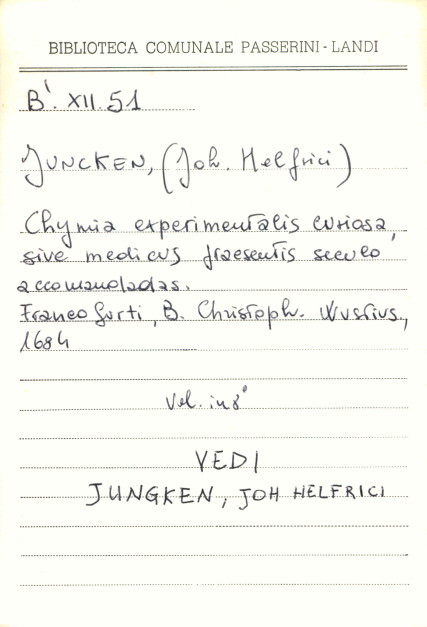 BIBLIOTECA COMUNALE PASSERINI - LANDI
B'. XII. 51
JUNCKEN, (Joh. Helfrici)
Chymia experimentalis curiosa,
sive medicus praesentis seculo
accomandadas.
Francofurti, B. Christoph. Wustius,
1684
Vol. in 8°
VEDI
JUNGKEN, JOH HELFRICI